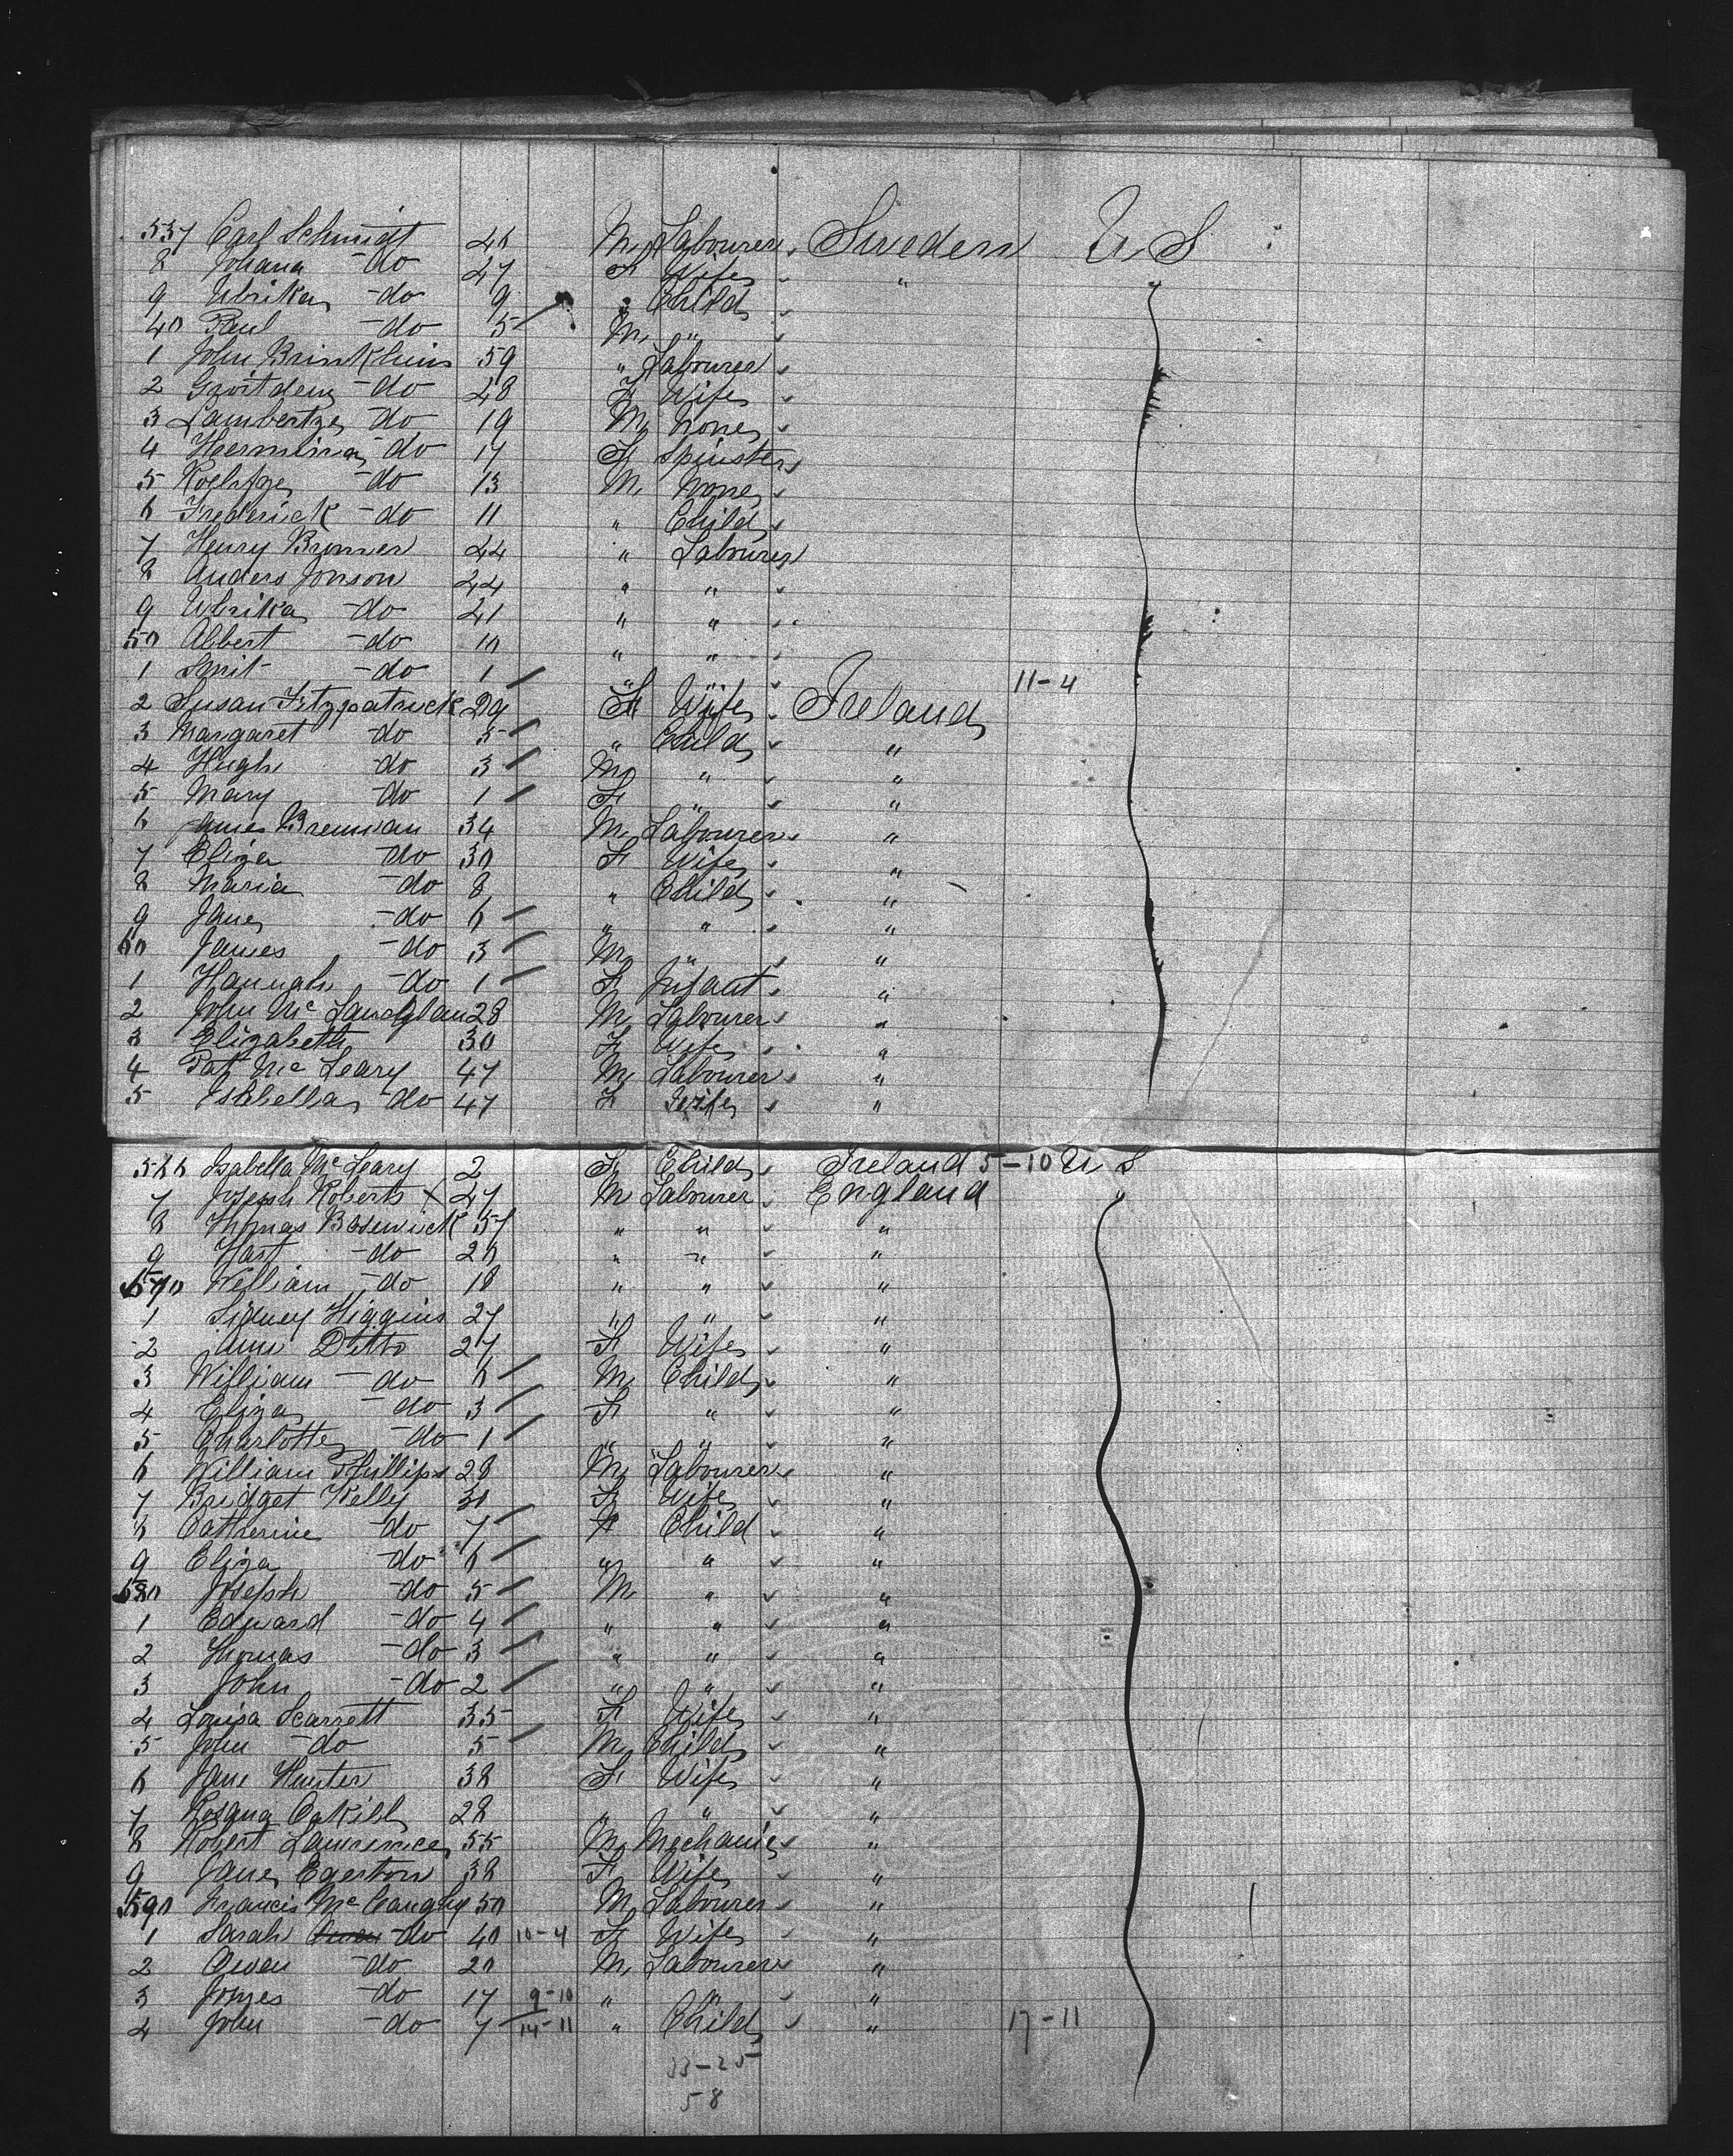 537 Carl Schmidt 46 M Labourer Sweden U S
8 Johana - do 47 F Wife "
9 Ulrika - do 9 " Child
40 Paul - do 5 M "
1 John Brinkhuis 59 " Labourer
2 - do 48 F Wife
3 Lambertze - do 19 M None
4 Hermina - do 17 F Spinster
5 - do 13 M None
6 Frederick - do 11 " Child
7 Henry Bronner 44 " Labourer
8 Anders Jonson 44 " "
9 Ulrika - do 41 " "
50 Albert - do 10 " "
1 Smit - do 1 " " 11-4
2 Susan Fitzpatrick 29 F Wife Ireland
3 Margaret do 5 " Child "
4 Hugh do 3 M " "
5 Mary do 1 F " "
6 James Brennan 34 M Labourer "
7 Eliza do 30 F Wife "
8 Maria - do 8 " Child "
9 Jane - do 6 " " "
60 James - do 3 M " "
1 Hannah - do 1 F Infant "
2 John Mc Laughlan 28 M Labourer "
3 Elizabeth 30 F Wife "
4 Pat Mc Leary 47 M Labourer "
5 Isabella do 47 F Wife "
566 Isabella Mc Leary 2 F Child Ireland 5-10 U S
7 Joseph Roberts X 27 M Labourer England
8 Thomas Boswick 57 " " "
9 - do 20 " " "
570 William - do 18 " " "
1 Sidney Higgins 27 " " "
2 Ann Ditto 27 F Wife "
3 William - do 6 M Child "
4 Eliza - do 3 F " "
5 Charlotte - do 1 " " "
6 William Phillips 28 M Labourer "
7 Bridget Kelly 30 F Wife "
8 Catherine do 7 F Child "
9 Eliza - do 6 " " "
580 Joseph - do 5 M " "
1 Edward - do 4 " " "
2 Thomas - do 3 " " "
3 John - do 2 " " "
4 Louisa Scarrett 35 F Wife "
5 John - do 5 M Child "
6 Jane Hunter 38 F Wife "
7 Rosana 28 " " "
8 Robert Lawrence 55 M Mechanic "
9 Jane Egerton 38 F Wife "
590 Francis Mc Caughy 50 M Labourer "
1 Sarah - do 40 10-4 F Wife "
2 Owen - do 20 M Labourer "
3 James - do 17 9-10 " " "
4 John - do 7 14-11 " Child " 17-11
33-25
58